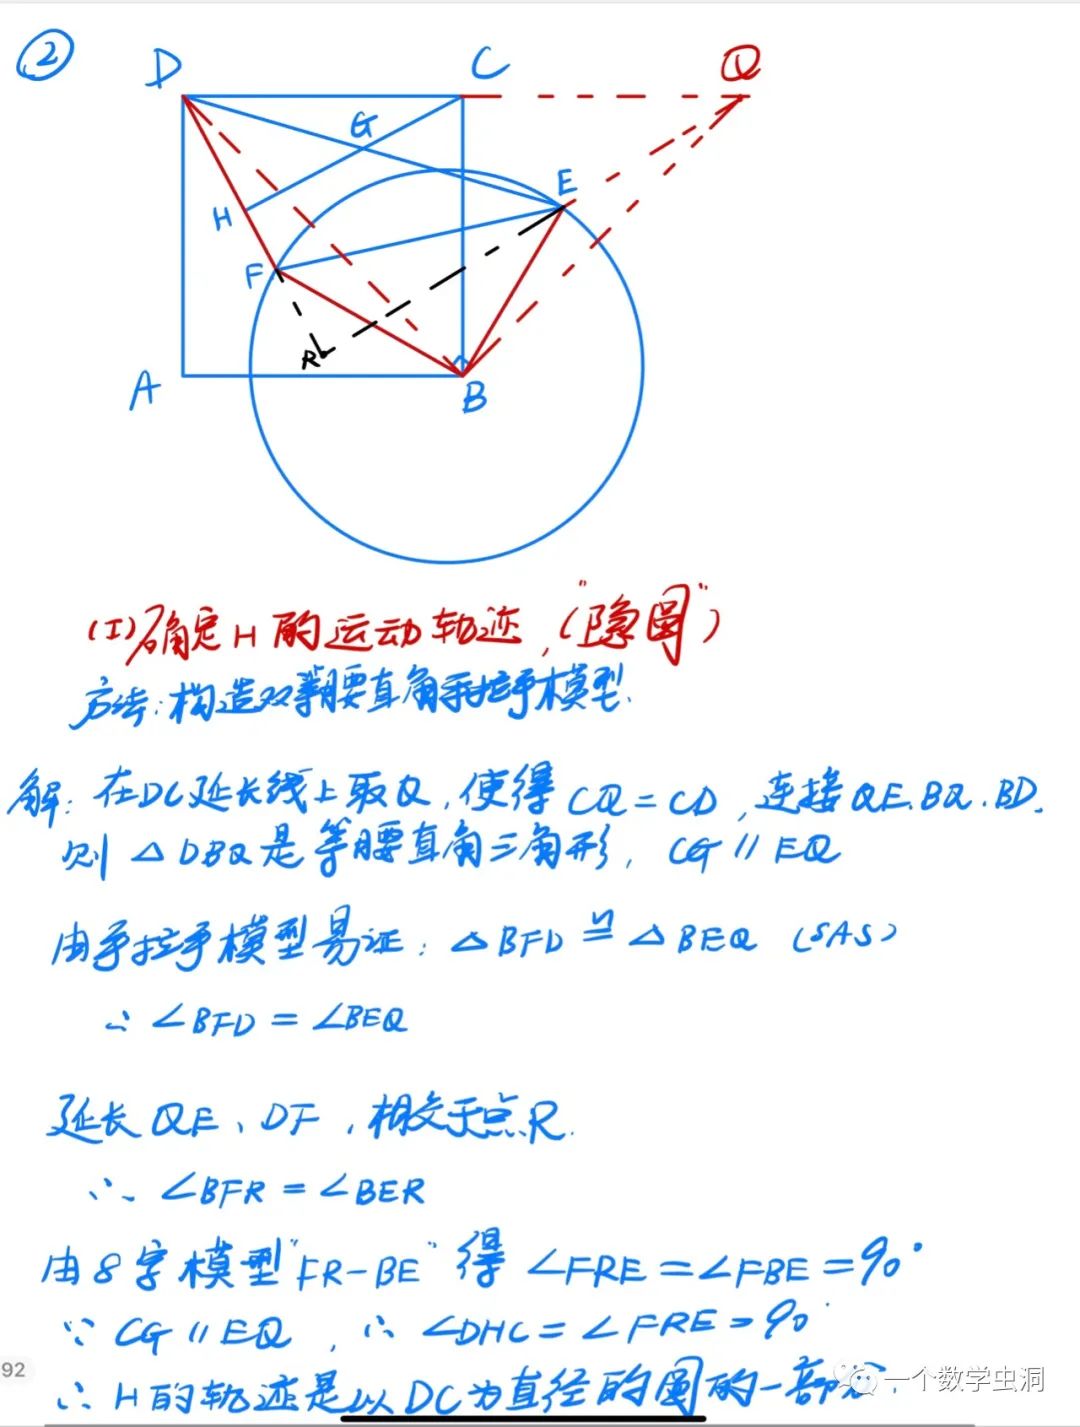 ②
D
C
Q
G
E
H
F
R
A
B
(I)确定H的运动轨迹,("隐圆")
方法:构造双等腰直角手拉手模型.
解:在DC延长线上取Q,使得CQ=CD,连接QE.BQ.BD.
则△DBQ是等腰直角三角形,CG∥EQ
由手拉手模型易证:△BFD≌△BEQ(SAS)
∴∠BFD=∠BEQ
延长QE、DF,相交于点R.
∴∠BFR=∠BER
由8字模型"FR-BE"得∠FRE=∠FBE=90°
∵CG∥EQ,∴∠DHC=∠FRE=90°
∴H的轨迹是以DC为直径的圆的一部分.
92
一个数学虫洞